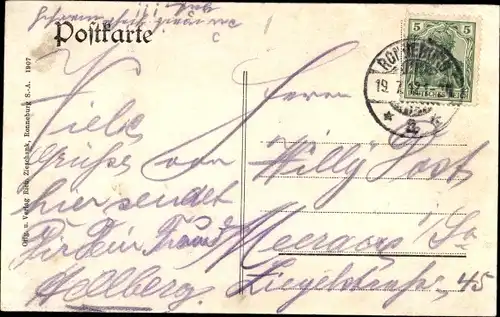 Postkarte
Orig. u. Verlag Rich. Zieschank, Ronneburg S.-A. 1907
5 5
DEUTSCHES
RONNEBURG
19. 7.
Viele
Grüsse von
hier sendet
Dir Dein Freund
Hellberg.
Herrn
Willy Jost
Meerane i/Sa
Ziegelstraße, 45